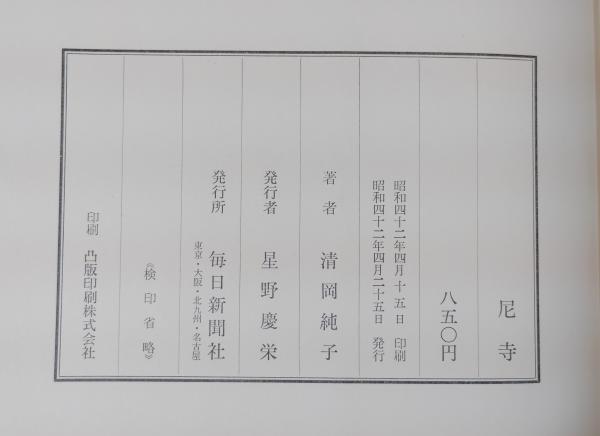 尼寺
八五〇円
昭和四十二年四月十五日 印刷
昭和四十二年四月二十五日 発行
著者 清岡純子
発行者 星野慶栄
発行所 毎日新聞社
東京・大阪・北九州・名古屋
《検印省略》
印刷 凸版印刷株式会社